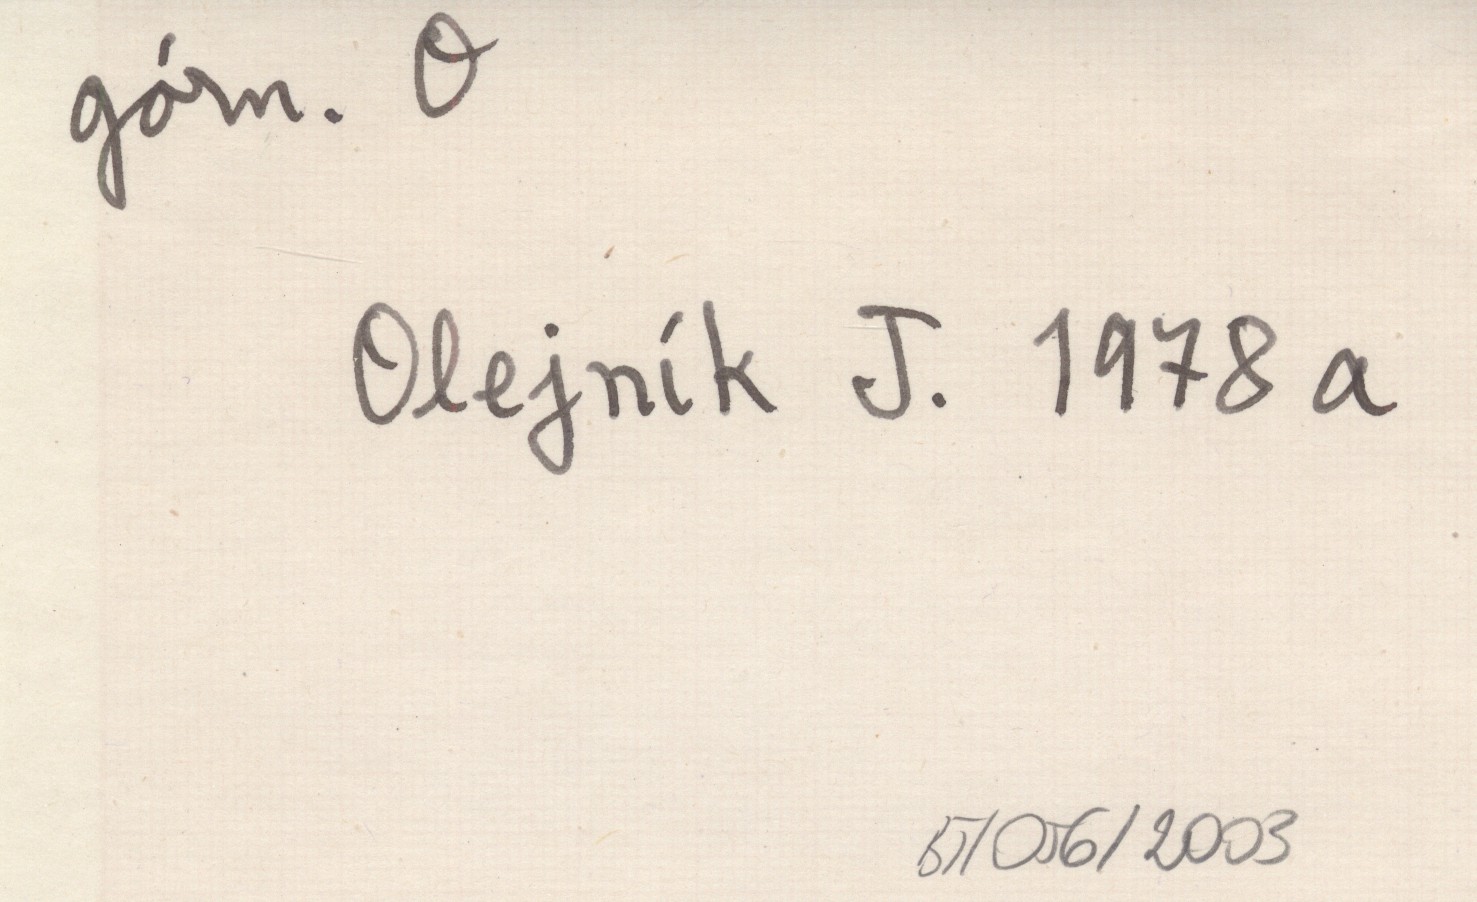 górn. O
Olejník J. 1978 a
/056/2003